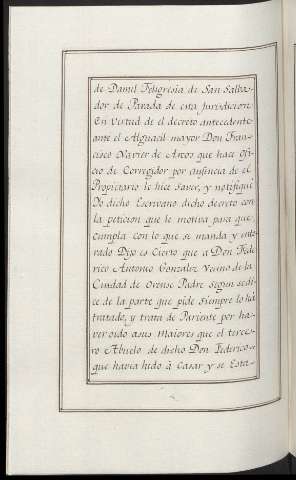 de Damil Feligresia de San Salba-
dor de Parada de esta jurisdicion
En virtud de el decreto antecedente
ante el Alguacil mayor Don Fran-
cisco Xavier de Arcos que hace ofi-
cio de Corregidor por ausencia de el
Propietario le hice saver, y notifiqué
Yo dicho Escrivano dicho decreto con
la peticion que le motiva para que
cumpla con lo que se manda y ente-
rado Dijo es Cierto que a Don Fede-
rico Antonio Gonzalez Vecino de la
Ciudad de Orense Padre segun se di-
ce de la parte que pide siempre lo há
tratado, y trata de Pariente por ha-
ver oido a sus Maiores que el terce-
ro Abuelo de dicho Don Federico
que havia hido á Casar y se Esta-